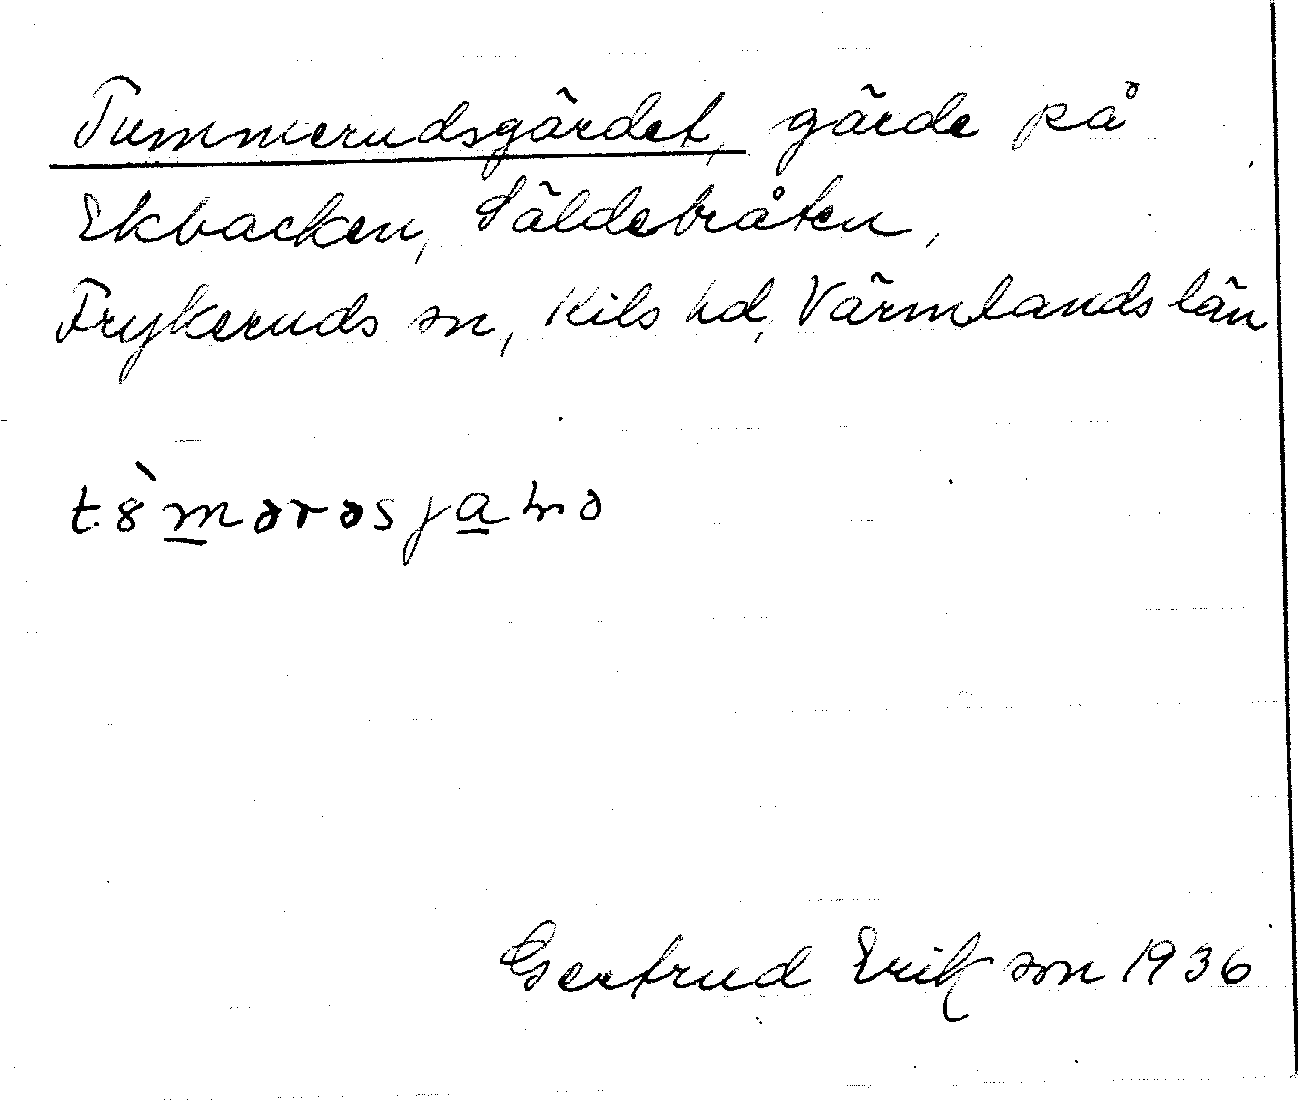 Tummerudsgärdet, gärde på
Ekbacken, Säldebråten,
Frykeruds sn, Kils hd, Värmlands län
Gertrud Erikson 1936